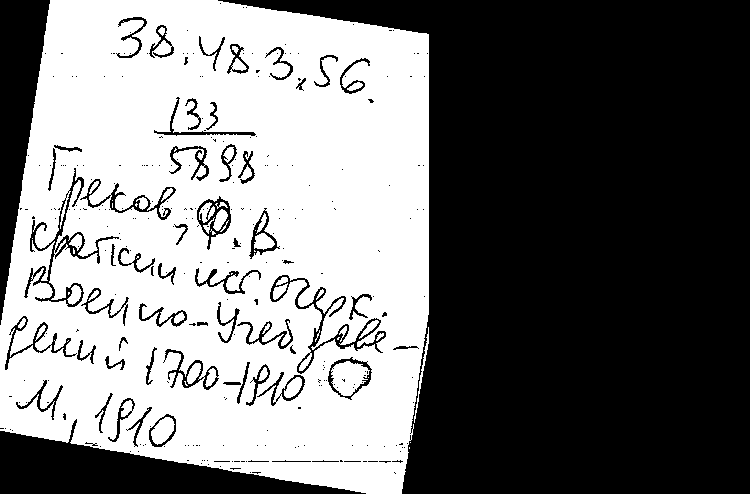 38.48.3.56.
133
5898
Греков, Ф.В.
краткий ист. очерк.
Военно-учеб. заве-
дений 1700-1910
М., 1910